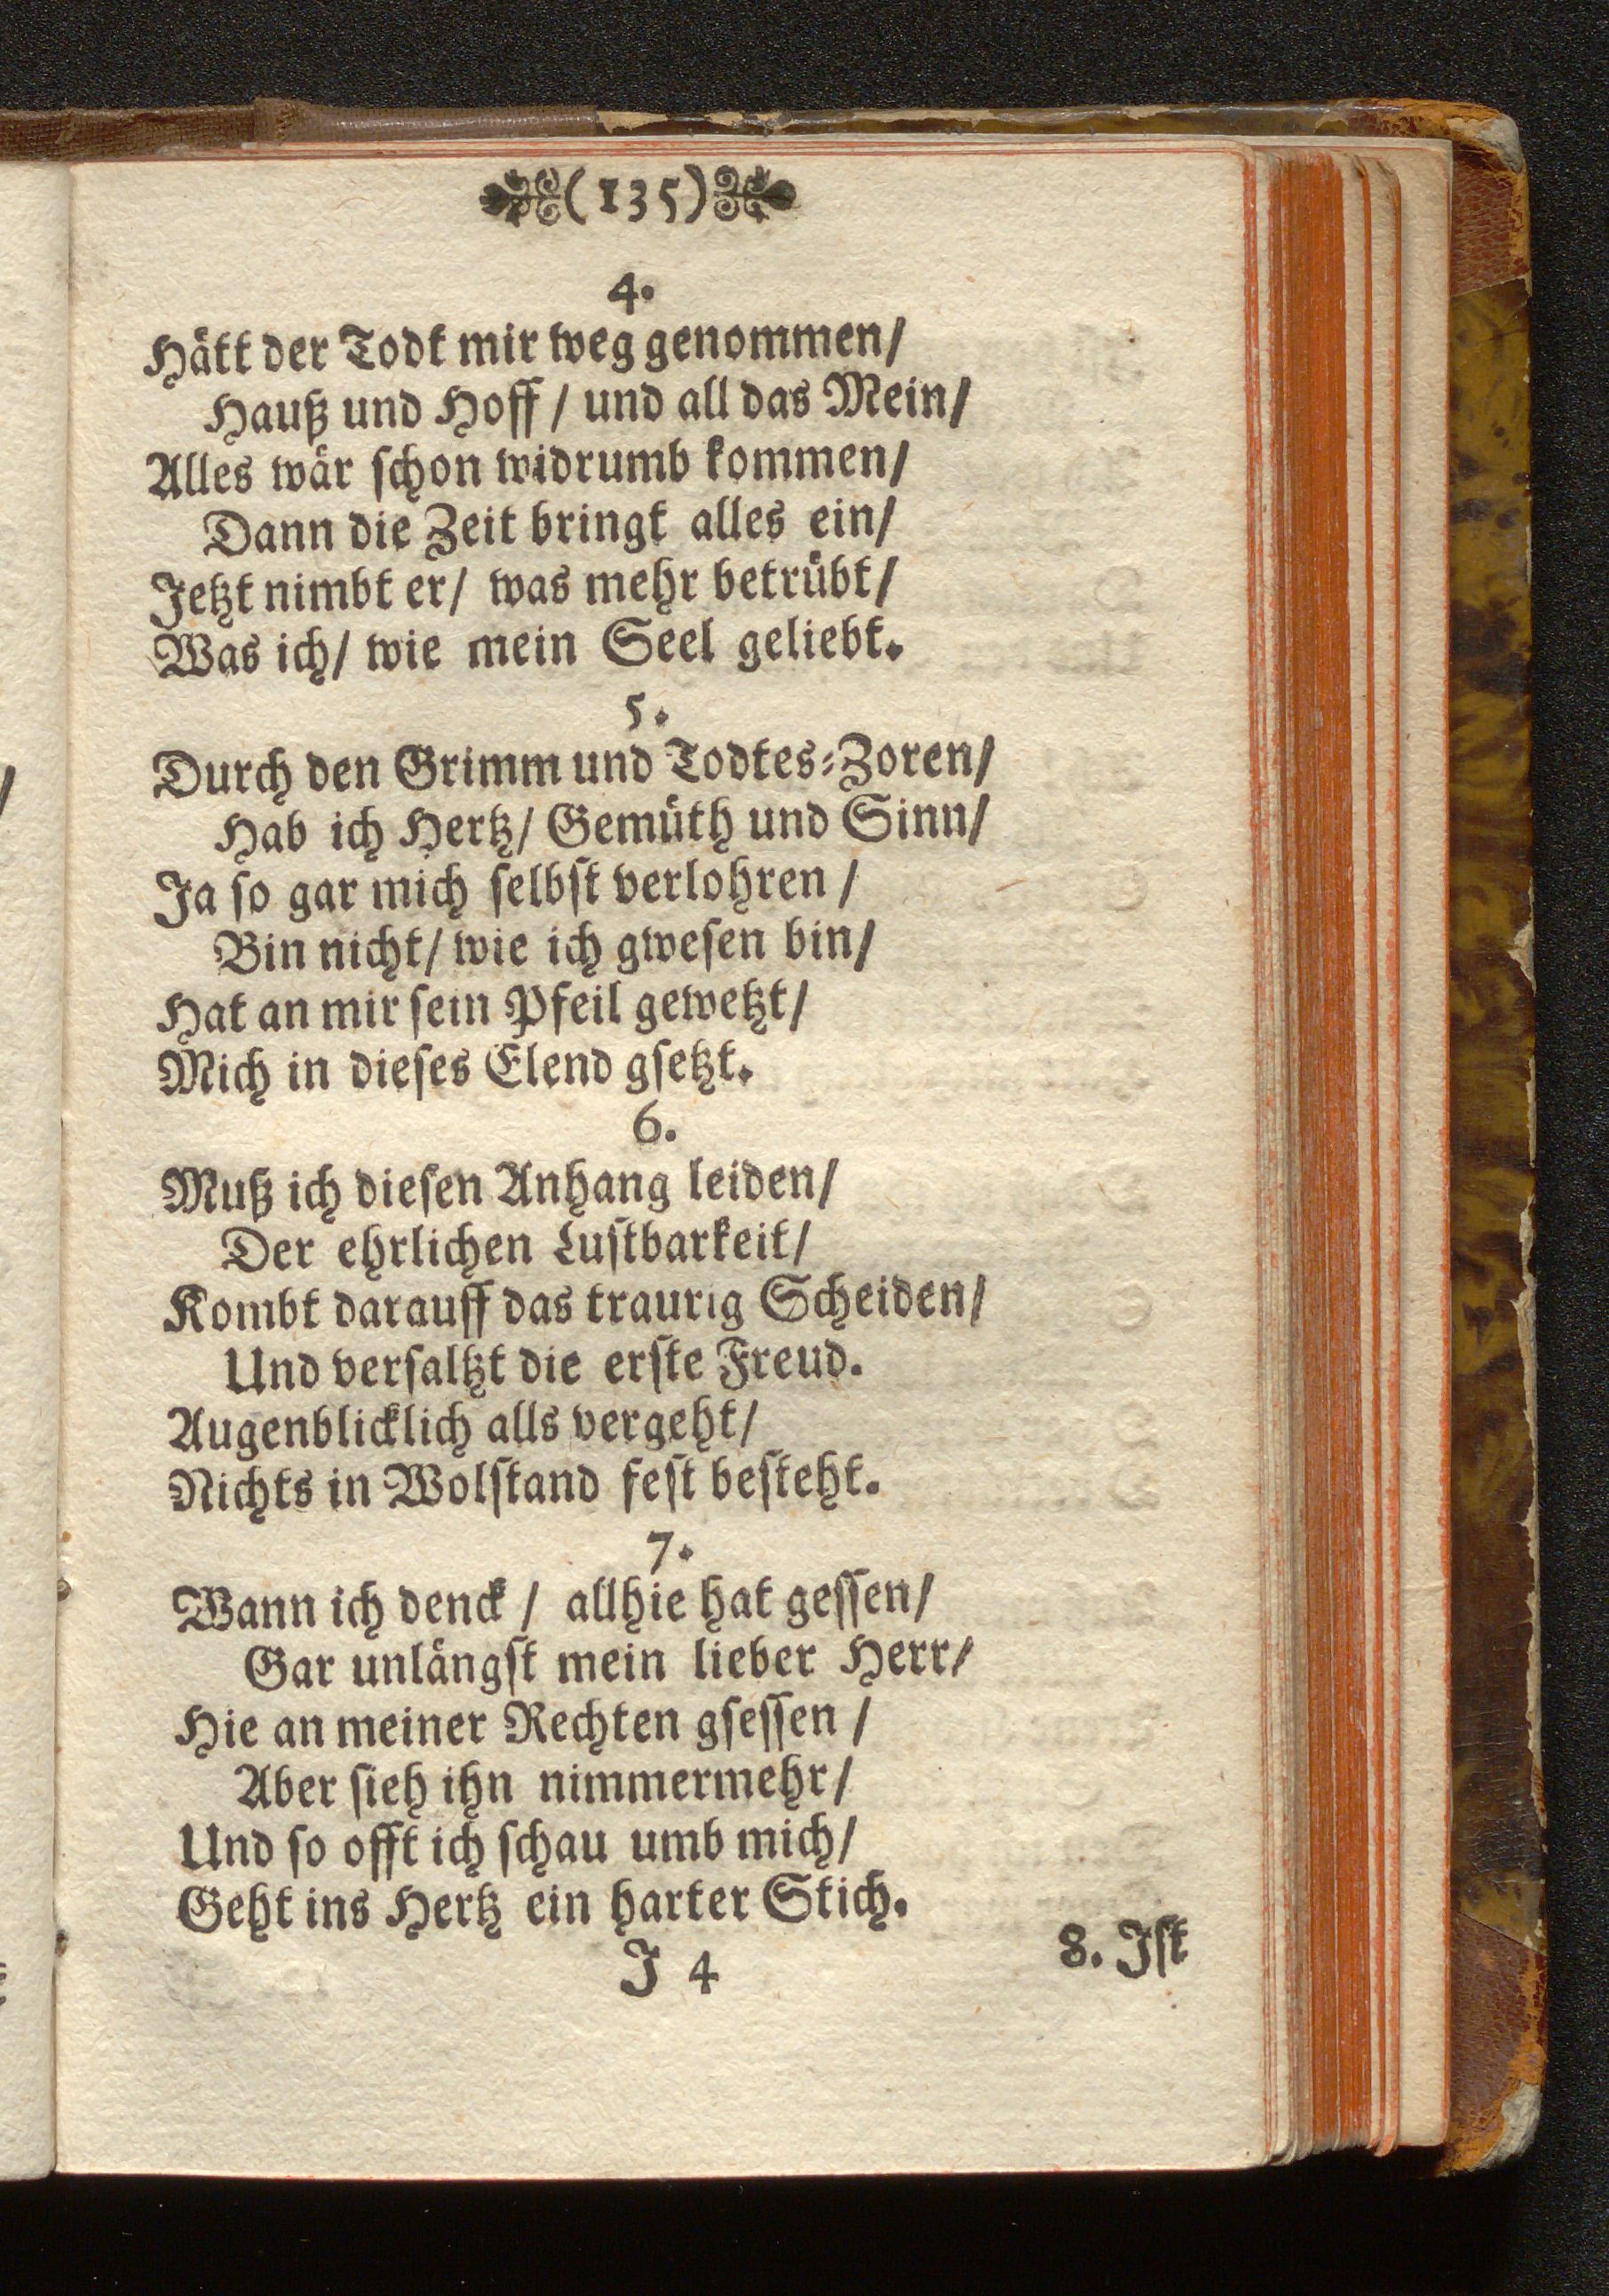 (135)
4.
Hätt der Todt mir weg genommen/
Hauß und Hoff / und all das Mein/
Alles wär schon widrumb kommen/
Dann die Zeit bringt alles ein/
Jetzt nimbt er/ was mehr betrübt/
Was ich/ wie mein Seel geliebt.
5.
Durch den Grimm und Todtes-Zoren/
Hab ich Hertz/ Gemüth und Sinn/
Ja so gar mich selbst verlohren /
Bin nicht/ wie ich gwesen bin/
Hat an mir sein Pfeil gewetzt/
Mich in dieses Elend gsetzt.
6.
Muß ich diesen Anhang leiden/
Der ehrlichen Lustbarkeit/
Kombt darauff das traurig Scheiden/
Und versaltzt die erste Freud.
Augenblicklich alls vergeht/
Nichts in Wolstand fest besteht.
7.
Wann ich denck / allhie hat gessen/
Gar unlängst mein lieber Herr/
Hie an meiner Rechten gsessen /
Aber sieh ihn nimmermehr/
Und so offt ich schau umb mich/
Geht ins Hertz ein harter Stich.
J 4
8. Ist